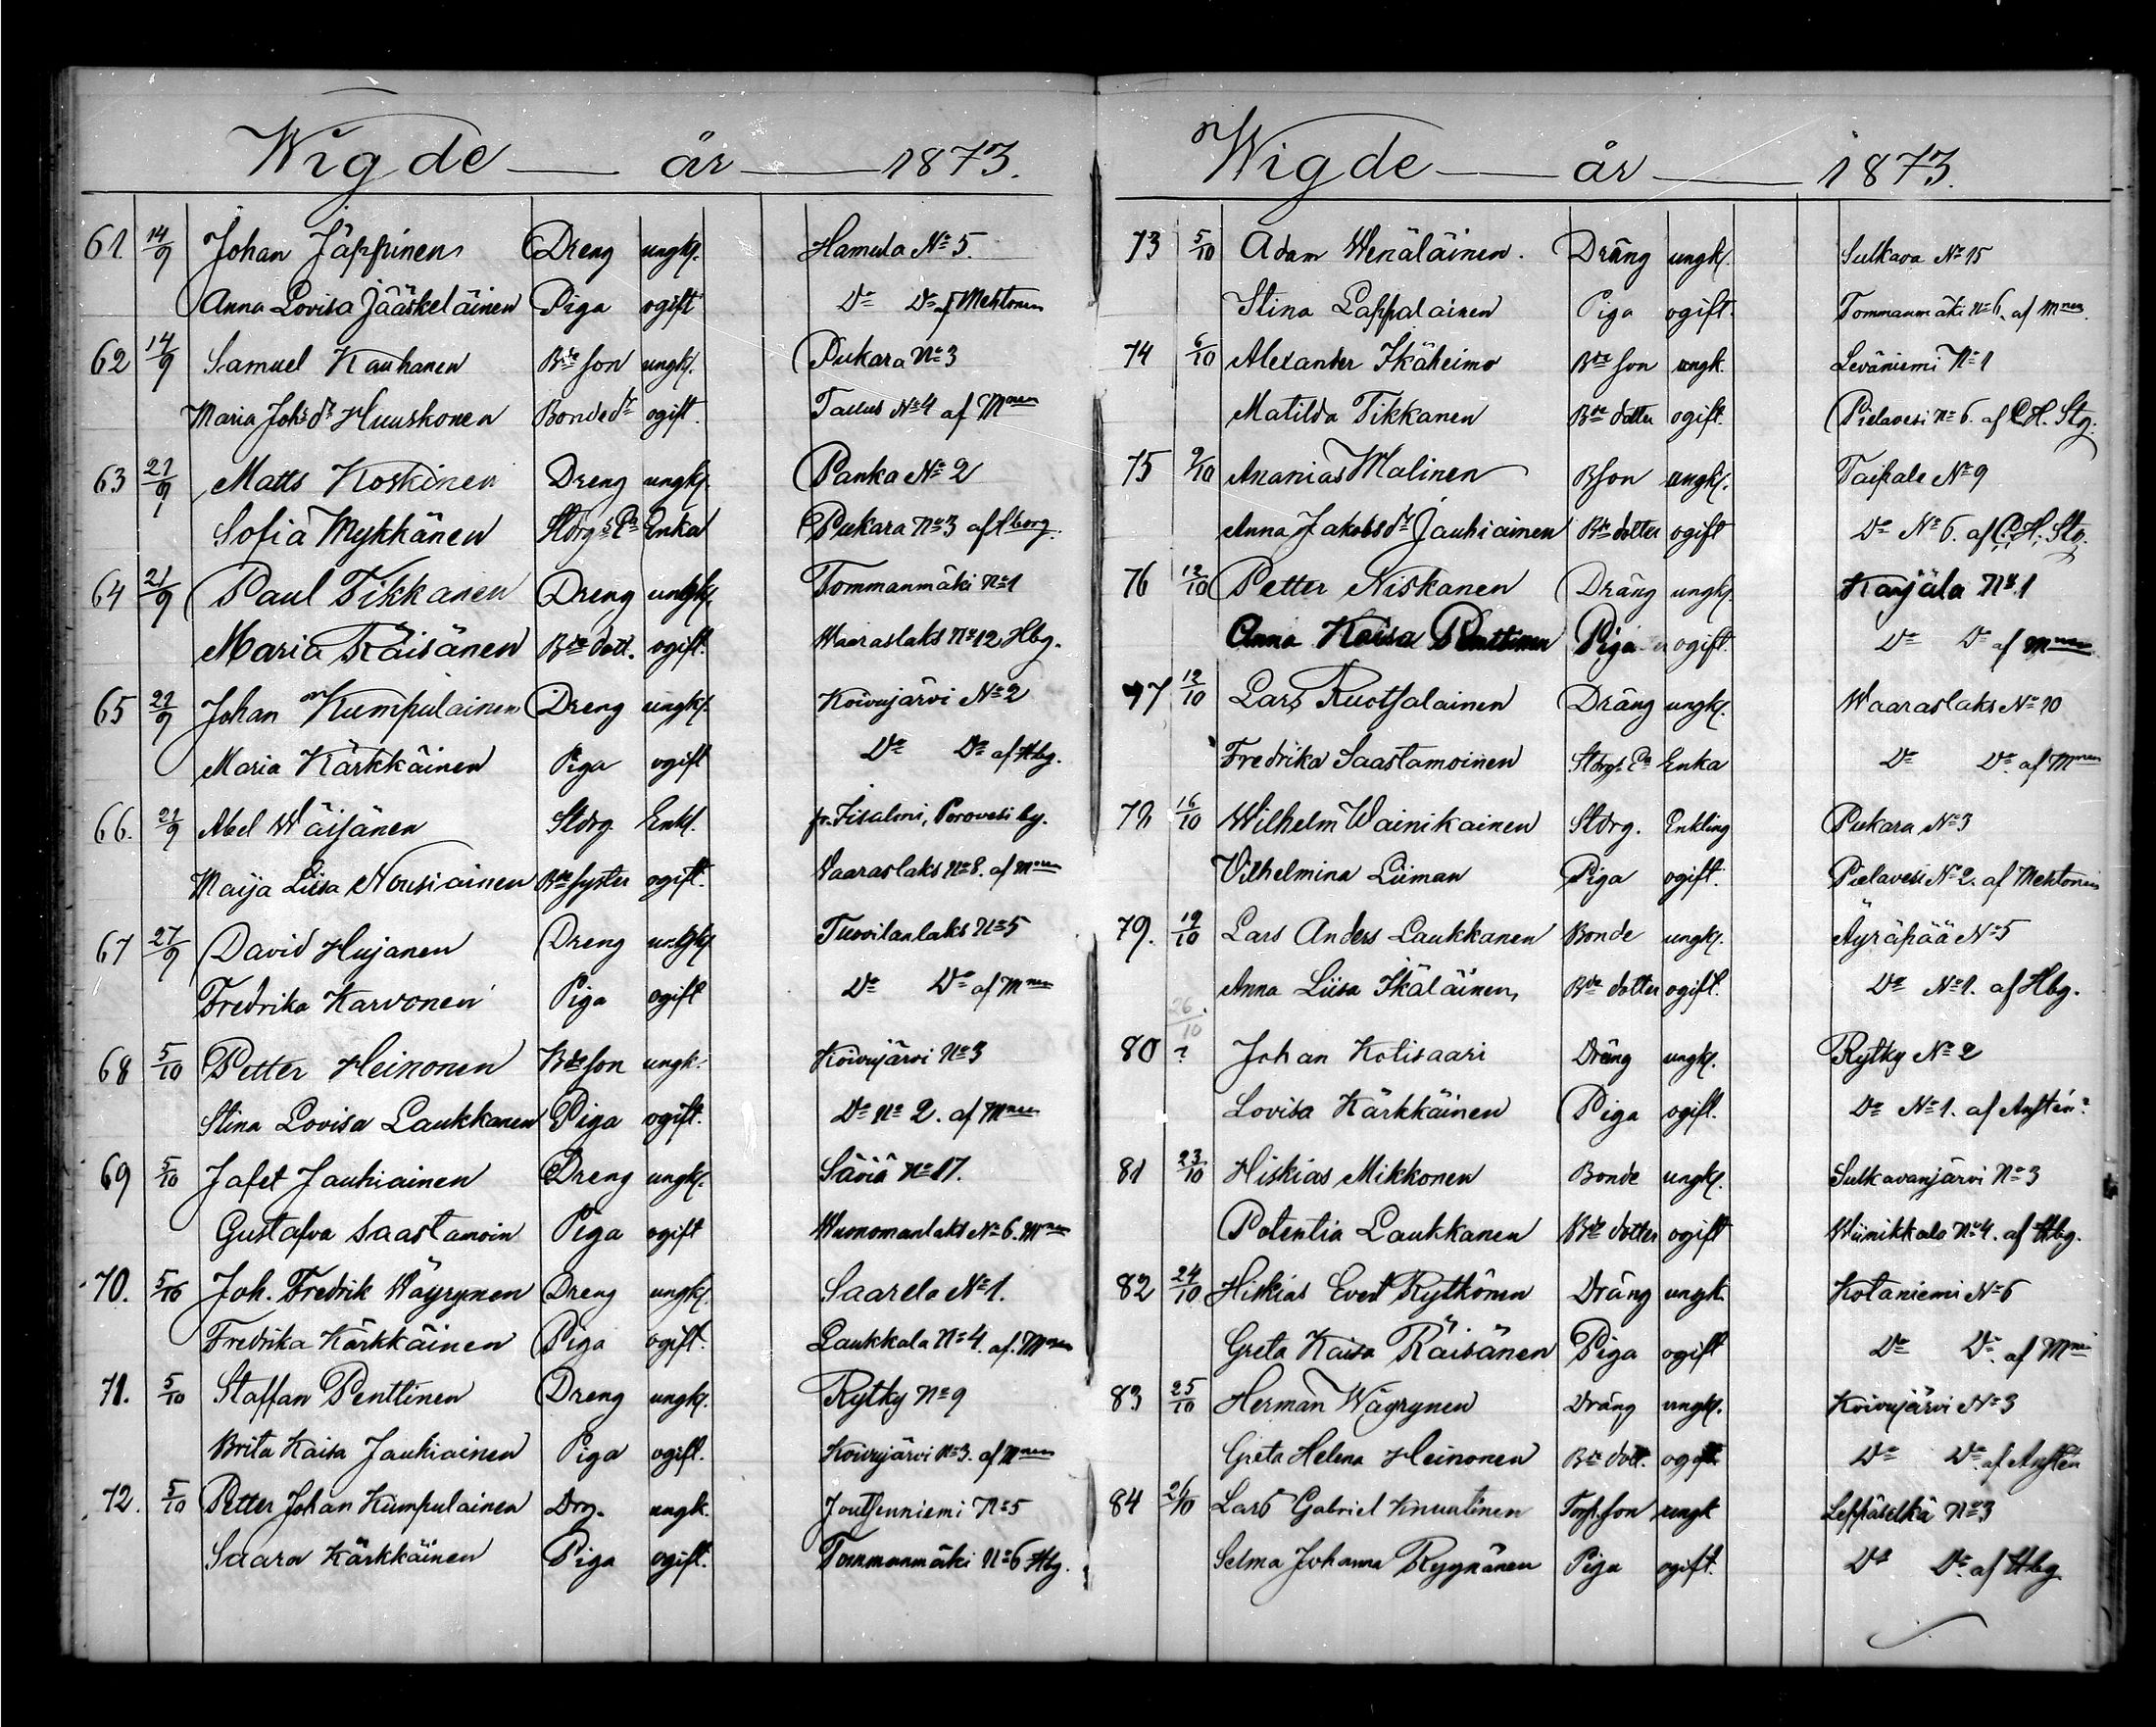 Wigde — år — 1873.
61. 14/9 Johan Jäppinen Dreng ungk. Hamula No 5.
Anna Lovisa Jääskeläinen Piga ogift Do Do af Mehtonen
62 14/9 Samuel Kauhanen Bde son ungk. Pukara No 3
Maria Johsdr Huuskonen Bondedr ogift. Taulus No 4 af Mnen
63 21/9 Matts Koskinen Dreng ungk. Panka No 2
Sofia Mykkänen Enka Pukara No 3 af
64 21/9 Paul Tikkanen Dreng ungk. Tommanmäki No 1
Maria Räisänen Bde dott. ogift. Waaraslaks No 12 Hbg.
65 22/9 Johan Kumpulainen Dreng ungk. Koivujärvi No 2
Maria Kärkkäinen Piga ogift Do Do af Hbg.
66. 21/9 Abel Wäisänen Stdrg Enkl. fr. Iisalmi, Porovesi by.
Maija Liisa Nousiainen Bde syster ogift. Waaraslaks No 8. af Mnen
67 27/9 David Hujanen Dreng ungk. Tuovilanlaks No 5
Fredrika Karvonen Piga ogift Do Do af Mnen
68 5/10 Petter Heinonen Bde son ungk. Koivujärvi No 3
Stina Lovisa Laukkanen Piga ogift. Do No 2. af Mnen
69 5/10 Jafet Jauhiainen Dreng ungk. Säviä No 17.
Gustafva Saastamoin Piga ogift Wuonomanlaks No 6. Mnen
70. 5/10 Joh. Fredrik Wäyrynen Dreng ungk. Saarela No 1.
Fredrika Kärkkäinen Piga ogift. Laukkala No 4. af. Mnen
71. 5/10 Staffan Penttinen Dreng ungk. Rytky No 9
Brita Kaisa Jauhiainen Piga ogift. Koivujärvi No 3. af Mnen
72. 5/10 Petter Johan Kumpulainen Drg. ungk. Joutsenniemi No 5
Saara Kärkkäinen Piga ogift. Tommanmäki No 6 Hbg.
Wigde — år — 1873.
73 5/10 Adam Wenäläinen. Dräng ungk. Sulkava No 15
Stina Lappalainen Piga ogift. Tommanmäki No 6. af Mnen
74 6/10 Alexander Ikäheimo Bde son ungk. Leväniemi No 1
Matilda Tikkanen Bde dotter ogift. Pielavesi No 6. af C.H. Stg.
75 9/10 Ananias Malinen Bson ungk. Taipale No 9
Anna Jakobsdr Jauhiainen Bde dotter ogift Do No 6. af C.H. Stg.
76 12/10 Petter Niskanen Dräng ungk. Karjala No 1
Anna Kaisa Penttinen Piga ogift Do Do af Mnen
77 12/10 Lars Ruotsalainen Dräng ungk. Waaraslaks No 10
Fredrika Saastamoinen Enka Do Do af Mnen
78 16/10 Wilhelm Wainikainen Stdrg. Enkling Pukara No 3
Vilhelmina Liiman Piga ogift. Pielavesi No 2. af Mehtonen
79. 19/10 Lars Anders Laukkanen Bonde ungk. Äyräpää No 5
Anna Liisa Ikäläinen, Bde dotter ogift. Do No 1. af Hbg.
26/10
80 ? Johan Kotisaari Dräng ungk. Rytky No 2
Lovisa Kärkkäinen Piga ogift. Do No 1. af Aystén?
81 23/10 Hiskias Mikkonen Bonde ungk. Sulkavanjärvi No 3
Potentia Laukkanen Bde dotter ogift Wiinikkala No 4. af Hbg.
82 24/10 Hiskias Evert Rytkönen Dräng ungk. Kotaniemi No 6
Greta Kaisa Räisänen Piga ogift Do Do. af Mnen
83 25/10 Herman Wäyrynen Dräng ungk. Koivujärvi No 3
Greta Helena Heinonen Bde dott. ogift Do Do. af Aystén
84 26/10 Lars Gabriel Knuutinen Torp.son ungk Leppäselkä No 3
Selma Johanna Ryynänen Piga ogift. Do Do. af Hbg